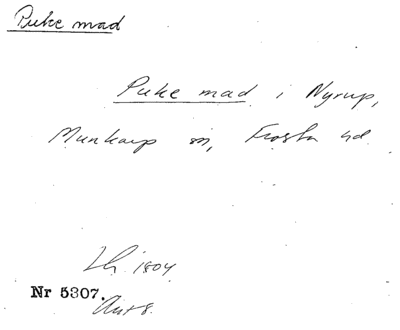 Puke mad
Puke mad i Nyrup,
Munkarp sn, Frosta hd
1804
Nr 5307.